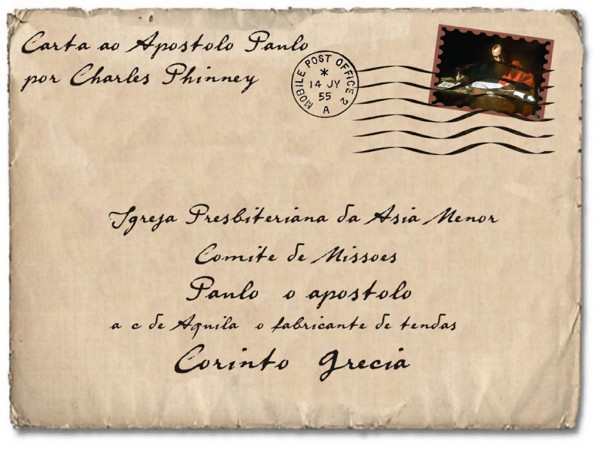 Carta ao Apostolo Paulo
por Charles Phinney
MOBILE POST OFFICE 2
14 JY
55
A
Igreja Presbiteriana da Asia Menor
Comite de Missoes
Paulo o apostolo
a c de Aquila o fabricante de tendas
Corinto Grecia